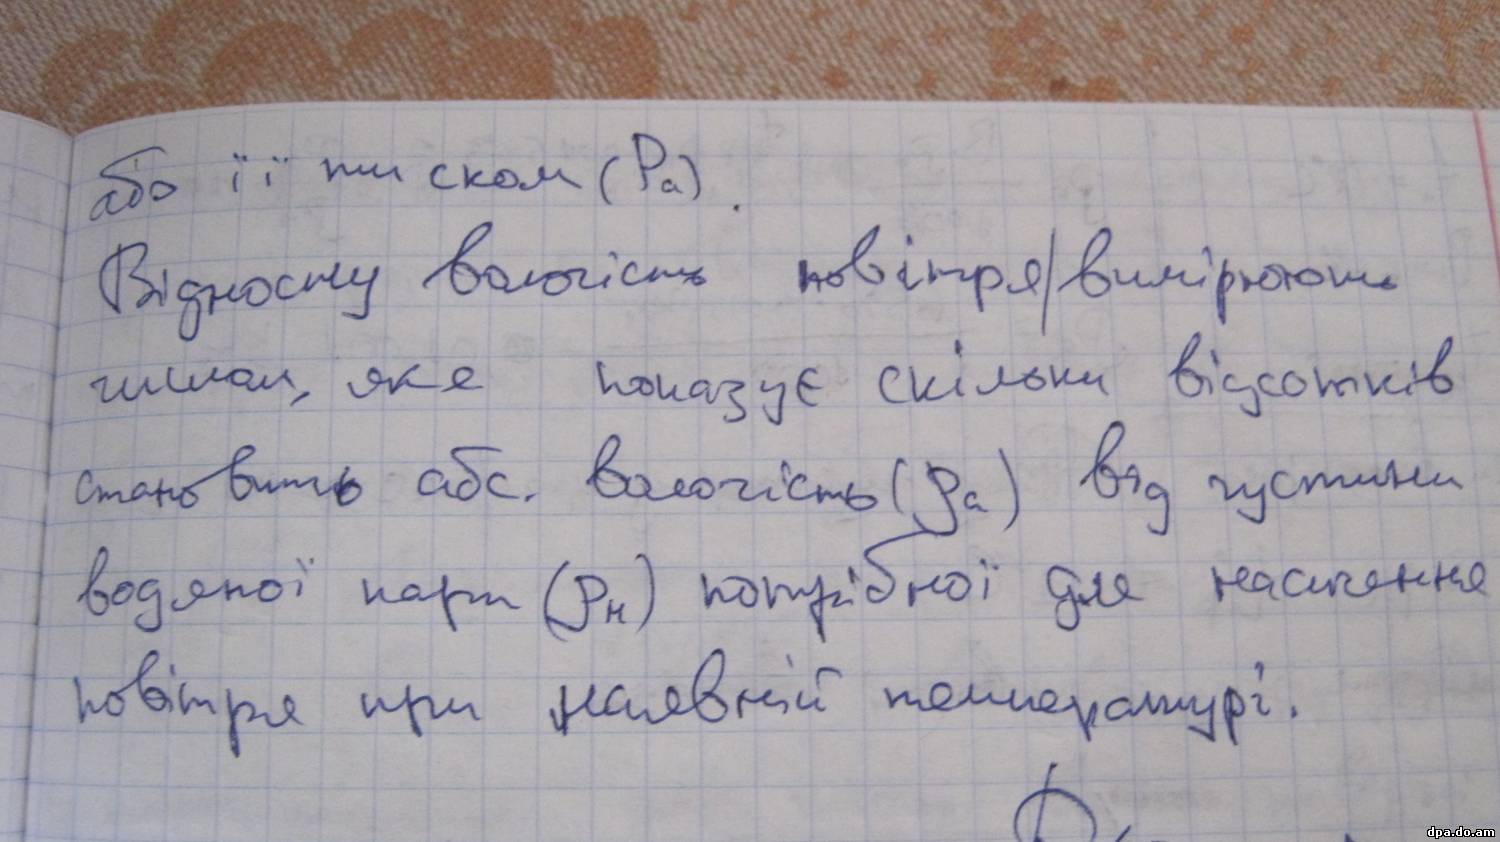 або її тиском (Pa).
Відносну вологість повітря/вимірюють
числом, яке показує скільки відсотків
становить абс. вологість (ρa) від густини
водяної пари (ρн) потрібної для насичення
повітря при наявній температурі.
dpa.do.am